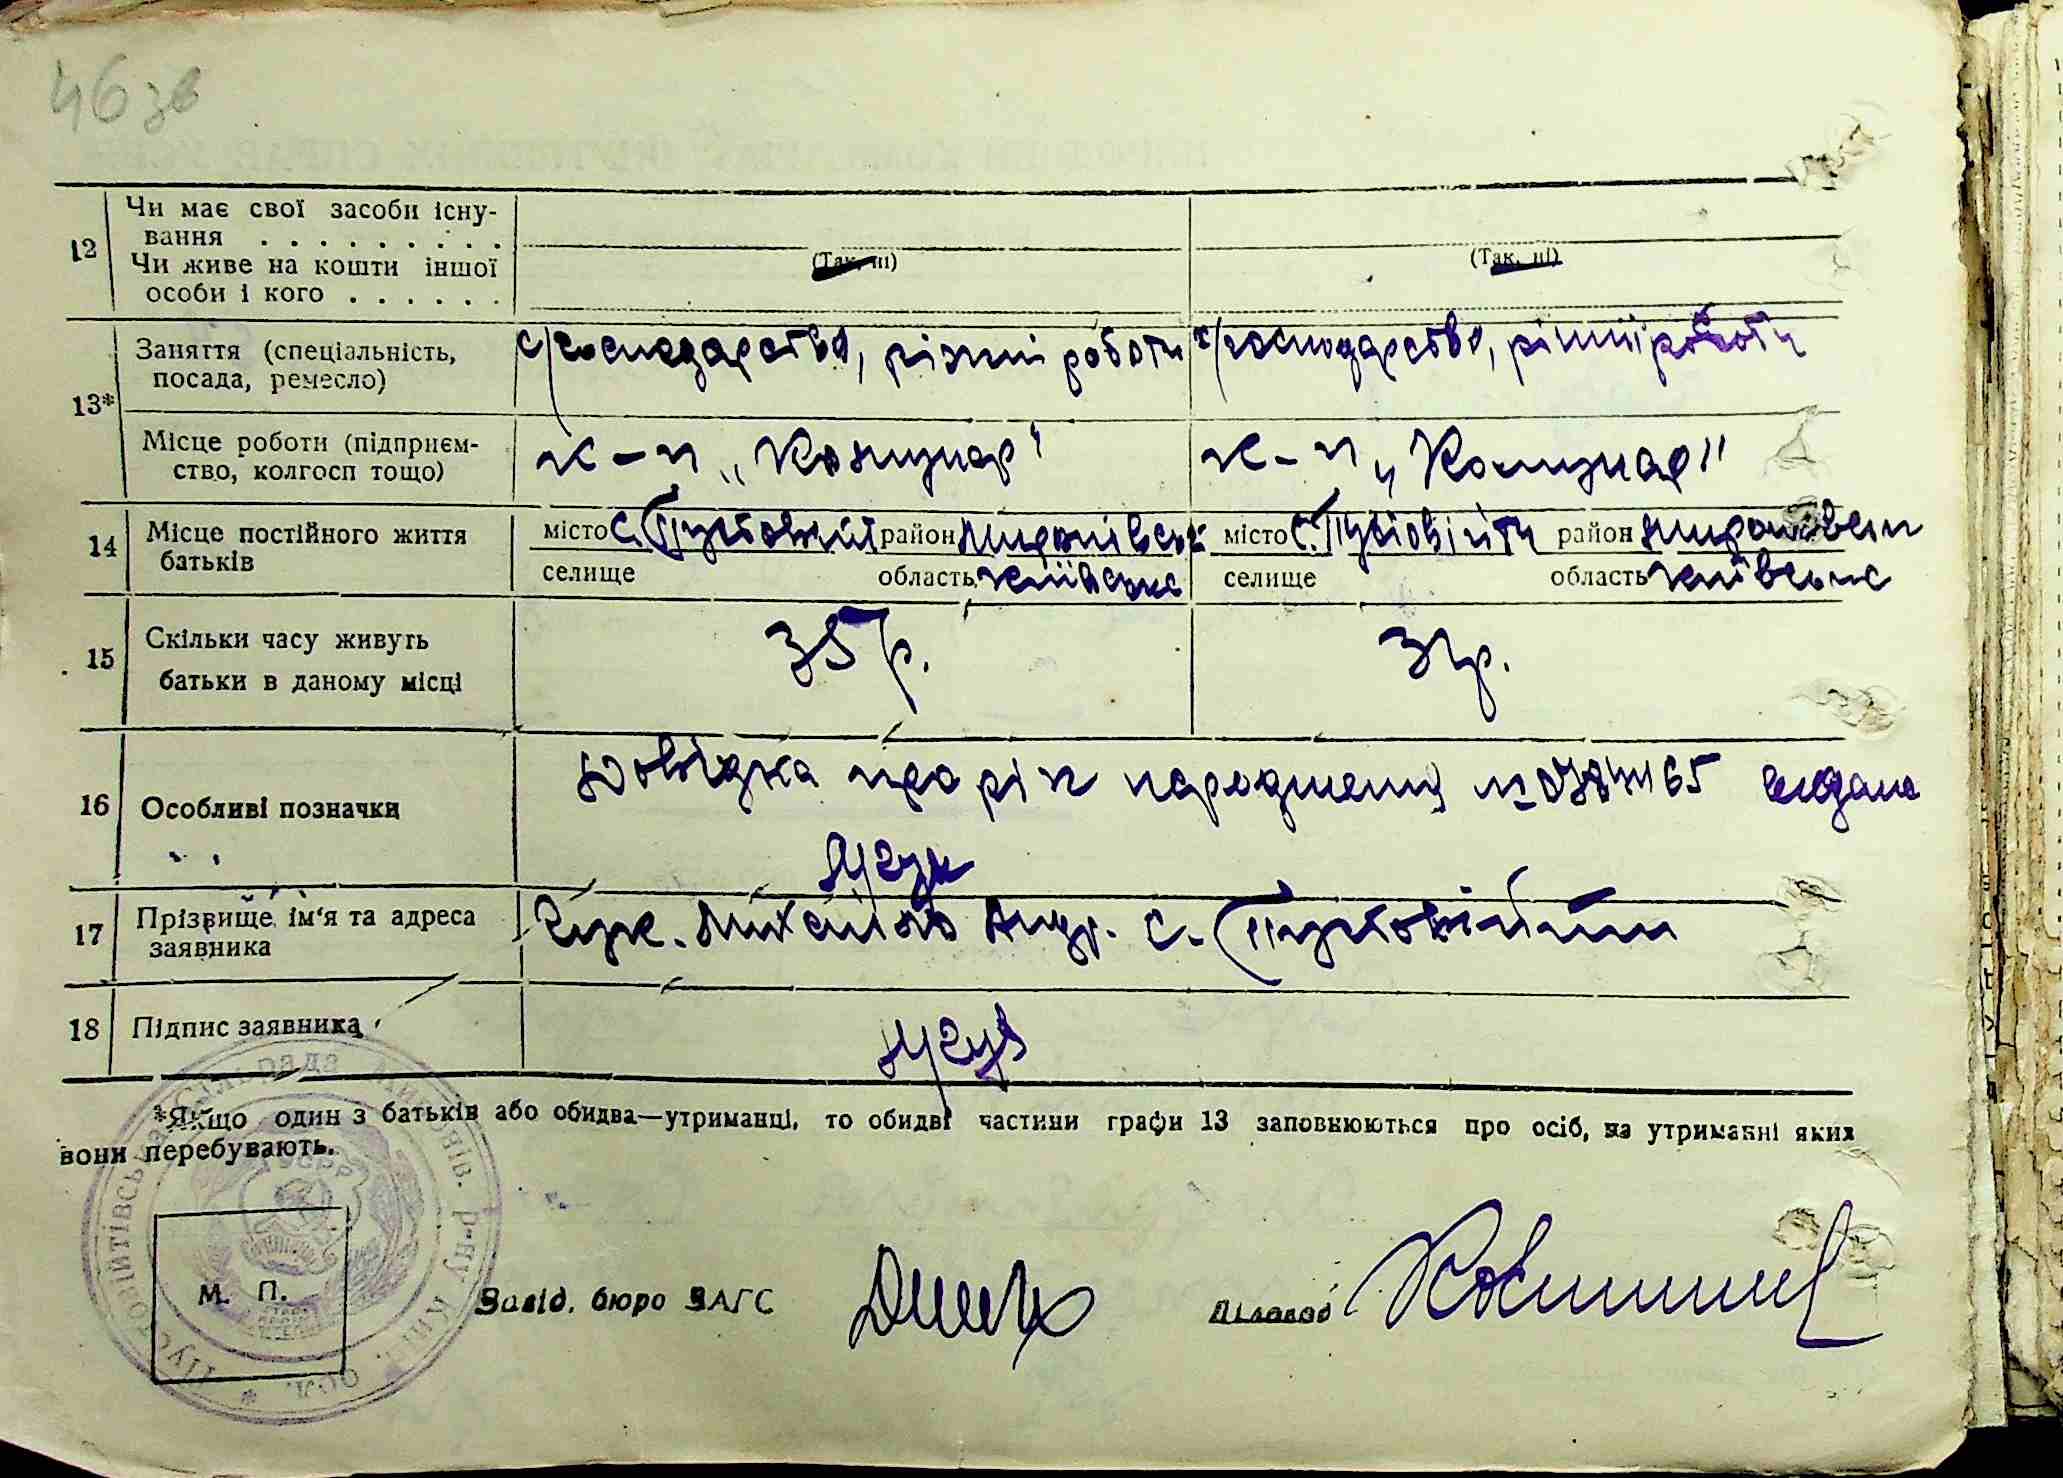 46 зв
12 Чи має свої засоби існу-
вання . . . . . . . . .
Чи живе на кошти іншої
особи і кого . . . . . .
(Так, ні) (Так, ні)
13* Заняття (спеціальність,
посада, ремесло)
с/господарство, різні роботи с/господарство, різні роботи
Місце роботи (підприєм-
ство, колгосп тощо)
к-п „Комунар" к-п „Комунар"
14 Місце постійного життя
батьків
місто с. Пустовійти район Миронівськ місто с. Пустовійти район Миронівськ
селище область Київська селище область Київська
15 Скільки часу живуть
батьки в даному місці
35 р. 31 р.
16 Особливі позначки
Довідка про рік народження № видана
17 Прізвище, ім'я та адреса
заявника
Михайло Андр. с. Пустовійти
18 Підпис заявника
*Якщо один з батьків або обидва—утриманці, то обидві частини графи 13 заповнюються про осіб, на утриманні яких
вони перебувають.
Пустовійтівська сільрада Миронів. р-ну Київ. обл. *
УСРР
М. П.
Завід. бюро ЗАГС
Діловод